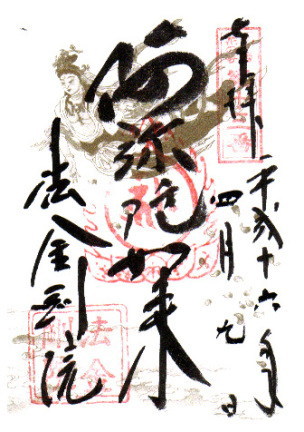 奉拝
平成十六年
四月九日
阿弥陀如来
法金剛院
法金剛院